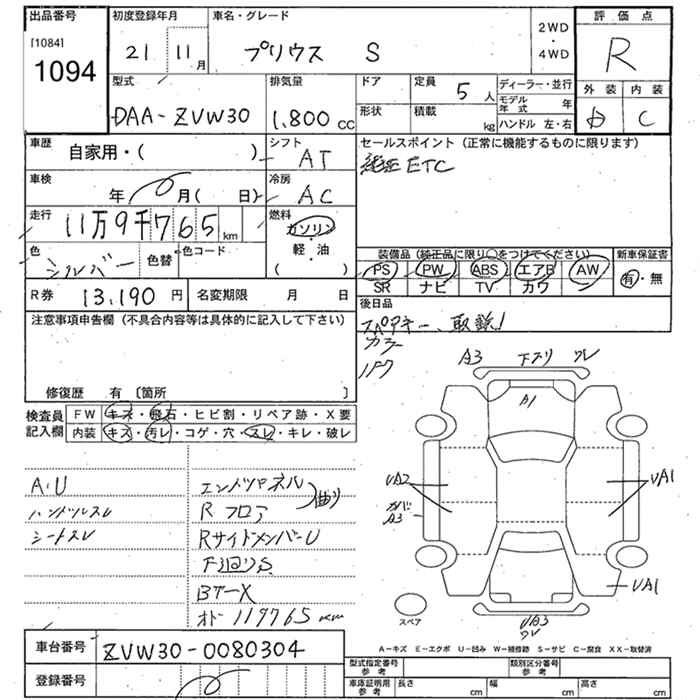 出品番号 初度登録年月 車名・グレード 評価点
[1084] 1094
21 11月 プリウス S
2WD・4WD
R
型式 排気量 ドア 定員 ディーラー・並行 外装 内装
DAA-ZVW30 1,800cc 5人
モデル年式 年
形状 積載 kg ハンドル 左・右
C
車歴 シフト セールスポイント（正常に機能するものに限ります）
自家用・( ) AT
純正ETC
車検 冷房
年 月( 日) AC
走行 燃料
11万9千765km
ガソリン・軽・油
( )
色 色替 色コード
シルバー
装備品（純正品に限り○をつけてください） 新車保証書
PS PW ABS エアB AW 有・無
SR ナビ TV カワ
R券 13,190円 名変期限 月 日
後日品
注意事項申告欄（不具合内容等は具体的に記入して下さい）
スペアキー、取説
修復歴 有〔箇所 〕
A3 下スリ ワレ
A1
検査員記入欄
FW キズ・飛石・ヒビ割・リペア跡・X要
内装 キズ・汚レ・コゲ・穴・スレ・キレ・破レ
A・U
ハンドルスレ
シートスレ
エンドパネル
Rフロア
曲り
RサイドメンバーU
下廻りS
オド 119765km
UA2
A3
UA1
UA1
UA3
ワレ
スペア
A－キズ E－エクボ U－凹み W－補修跡 S－サビ C－腐食 XX－取替済
車台番号 ZVW30-0080304
登録番号
型式指定番号参考 類別区分番号参考
車庫証明用参考 長さ cm 幅 cm 高さ cm